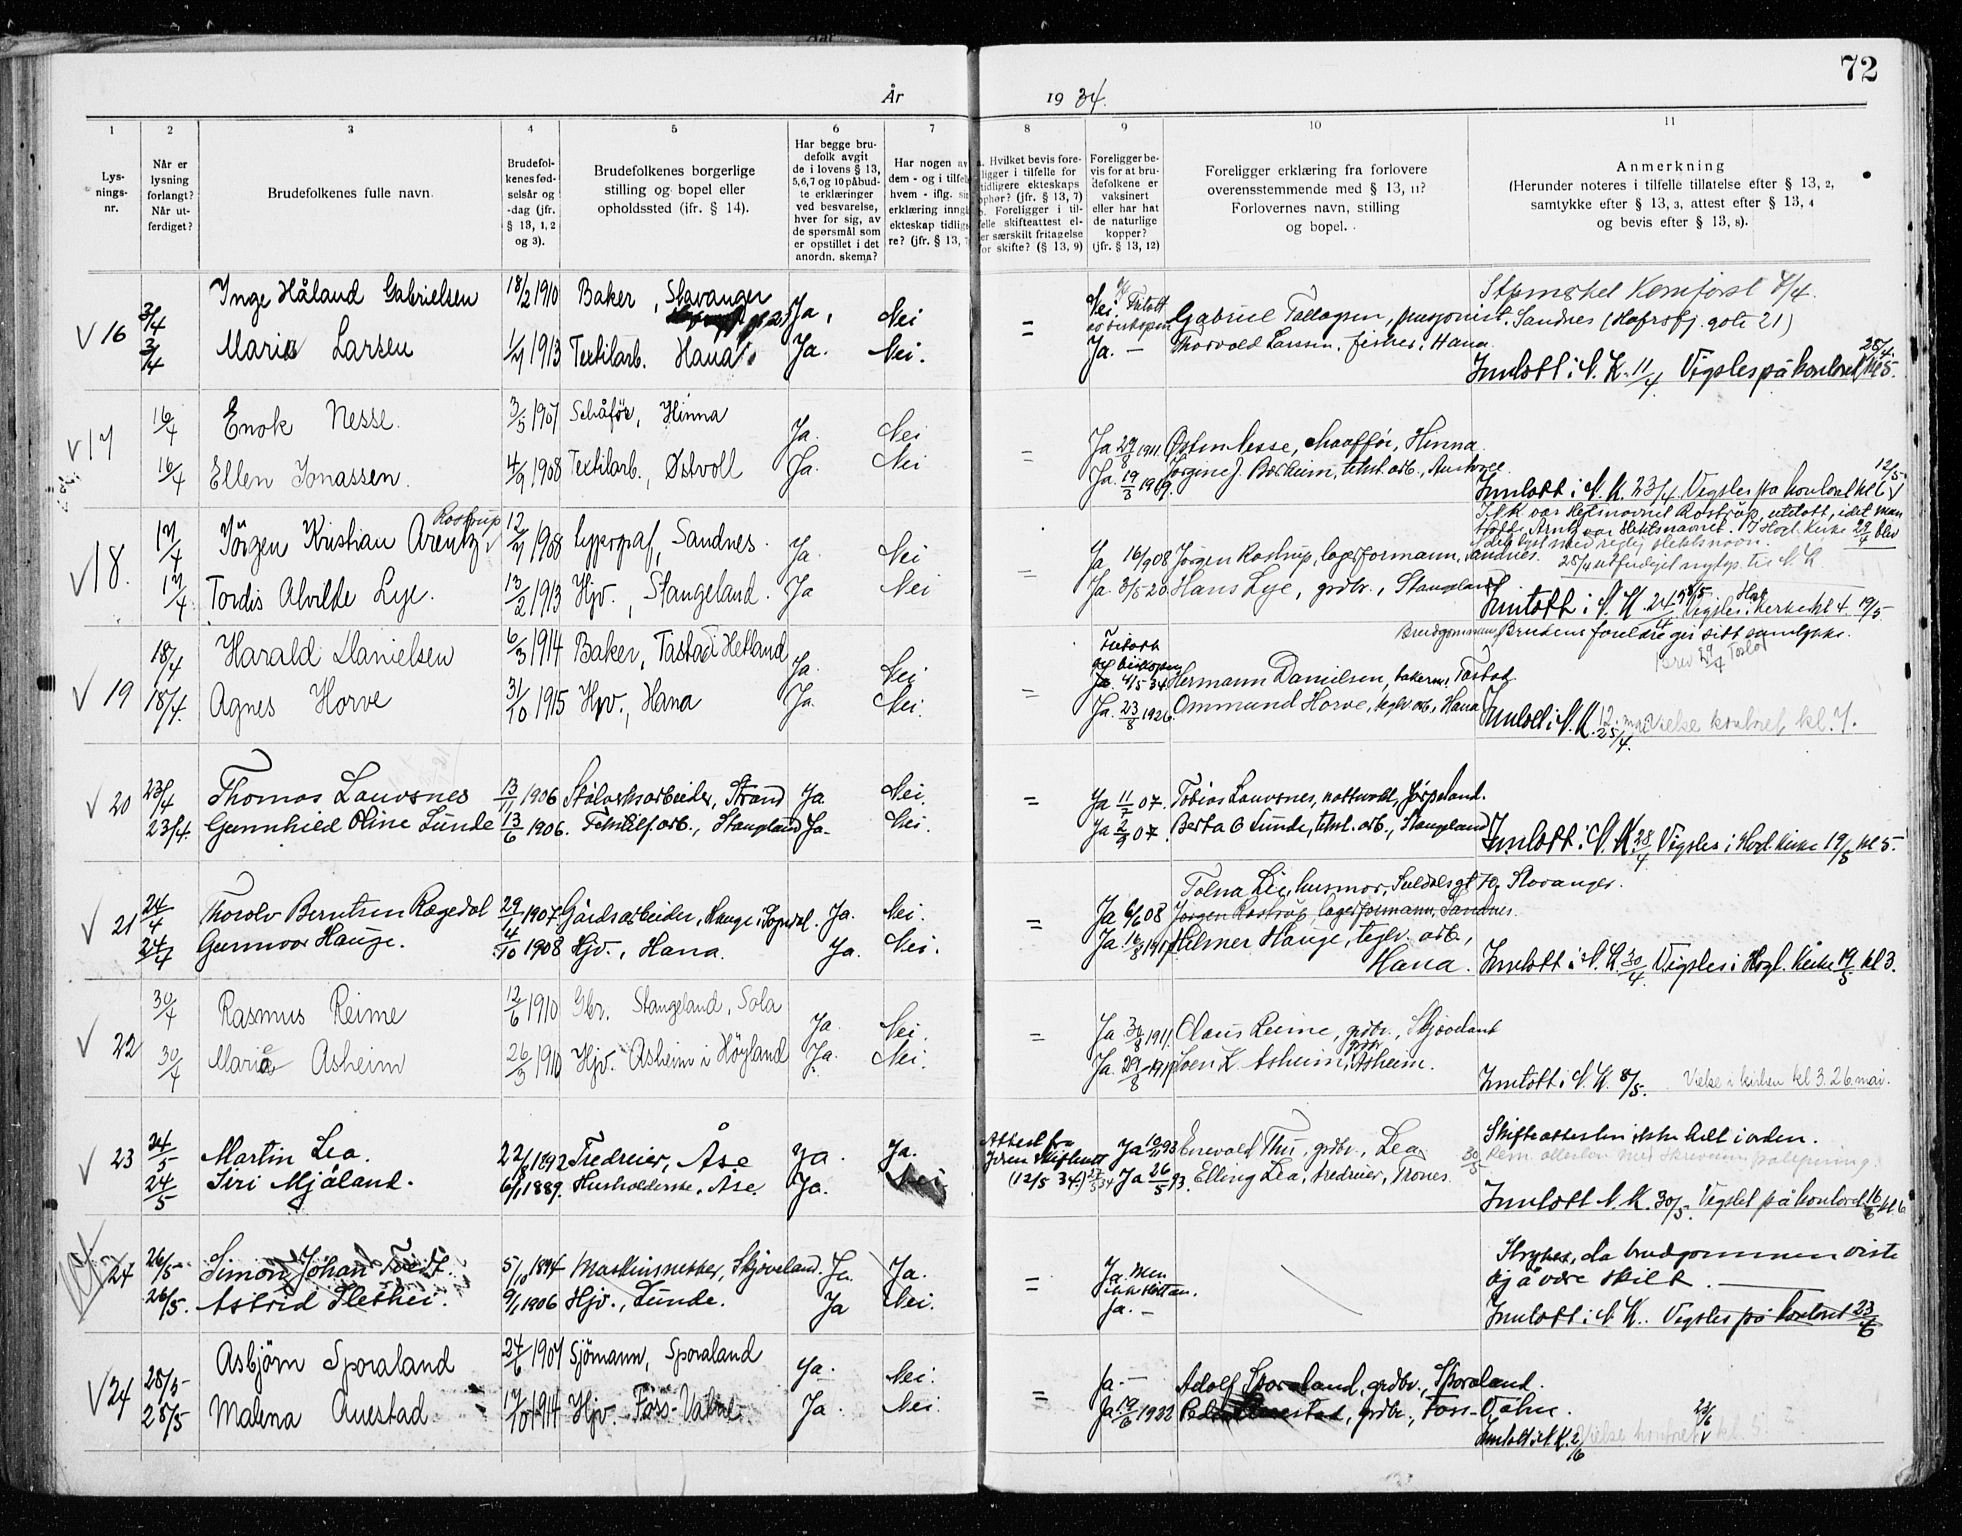 72
År 1934.
1 2 3 4 5 6 7 8 9 10 11
Lys-
nings-
nr.
Når er
lysning
forlangt?
Når ut-
ferdiget?
Brudefolkenes fulle navn.
Brudefol-
kenes fød-
selsår og
-dag (jfr.
§ 13, 1, 2
og 3).
Brudefolkenes borgerlige
stilling og bopel eller
opholdssted (jfr. § 14).
Har begge bru-
defolk avgit
de i lovens § 13,
5,6,7 og 10 påbud-
te erklæringer
ved besvarelse,
hver for sig, av
de spørsmål som
er opstillet i det
anordn. skema?
Har nogen av
dem - og i tilfel
hvem - iflg. si
erklæring inng
ekteskap tidlig
re? (jfr. § 13, 7
a. Hvilket bevis fore-
ligger i tilfelle for
tidligere ekteskaps
ophør? (jfr. § 13, 7)
b. Foreligger i til-
felle skifteattest el-
ler særskilt fritagelse
for skifte? (§ 13, 9)
Foreligger be-
vis for at bru-
defolkene er
vaksinert
eller har hat
de naturlige
kopper?
(jfr. § 13, 12)
Foreligger erklæring fra forlovere
overensstemmende med § 13, 11?
Forlovernes navn, stilling
og bopel.
Anmerkning
(Herunder noteres i tilfelle tillatelse efter § 13, 2,
samtykke efter § 13, 3, attest efter § 13, 4
og bevis efter § 13, 8).
V 16 3/4 Inge Håland Gabrielsen 18/2 1910 Baker, Stavanger Ja, Nei = Nei. Gabriel Tallagsen, pensjonist, Sandnes (Hafrsfj. gate 21)
3/4 Larsen 1/7 1913 Textilarb. Hana Ja. Nei. Ja. — Thorvald Larsen, fisker, Hana
Innlatt i N. K. 11/4 Vigsles på kontoret 28/4 kl 5.
V 17 16/4 Enok Nesse. 3/5 1907 Schåför, Hinna Ja. Nei = Ja Østen Nesse, chauffør, Hinna.
16/4 Ellen Jonassen. 4/9 1908 Textilarb., Østvoll Ja. Nei Ja. 19/3 1909
Innlatt i N. K. 23/4 Vigsles på kontoret 12/5
V 18. 17/4 Jörgen Kristian Arentz Rostrup 12/7 1908 typograf, Sandnes. Ja Nei = Ja 16/9 08 Jørgen Rostrup, lagerformann, Sandnes.
17/4 Tordis Alvilde Lye. 13/2 1913 Hjv., Stangeland. Ja Nei Ja. 3/5 20 Hans Lye, grdbr., Stangeland
Innlatt i N. K. 24/4 Vigsles i kirke kl 4 19/5
V 19 18/4 Harald Danielsen 6/3 1914 Baker, Tastad i Hetland Ja. Nei = Ja. 4/5 34 Hermann Danielsen, bakerm., Tastad
Brudgommens Brudens foreldre gir sitt samtykke.
18/4. Agnes Horve 31/10 1915 Hjv., Hana Ja. Nei. Ja. 23/8 1926. Ommund Horve, teglv. arb., Hana
Innlatt i N. K. 25/4. 12. mai Vielse kontoret kl. 7.
V 20 23/4 Thomas Lauvsnes 13/11 1906 Stålverksarbeider, Strand Ja. Nei. = Ja 11/7 07. Tobias Lauvsnes, nattvakt, Jørpeland.
23/4. Gunnhild Oline Lunde 13/6 1906. Tekstilf.arb., Stangeland Ja. Nei. Ja 2/9 07. Berta O Lunde, tekst. arb., Stangeland
Innlatt i N. K. 28/4 Vigsles i Høgl. kirke 19/5 kl 5.
V 21 24/4 Thorolv Berntsen Rægedal 29/1 1907. Gårdsarbeider, Hauge i Sogndal. Ja. Nei. = Ja 6/6 08 Jørgen Rostrup lagerformann, Sandnes.
24/4 Gunnvor Hauge. 4/10 1908 Hjv., Hana. Ja. Nei. Ja. Helmer Hauge, teglv. arb.,
Hana. Innlatt i N. K. 30/4 Vigsles i Høgl. kirke 19/5 kl 3.
V 22 30/4 Rasmus Reime 12/6 1910 Gbr. Stangeland, Sola Ja. Nei. = Ja Claus Reime, grdbr., Skjæveland
30/4 Asheim 26/3 1910 Hjv. Asheim i Höyland Ja. Nei. Ja. 29/8 Sven K Asheim, grdbr Asheim.
Innlatt i N. K. 8/5. Vielse i kirken kl 3. 26. mai.
V 23 24/5 Martin Lea. 1892 Fredreier, Åse Ja. Ja. Attest fra Jæren skifterett (12/5 34.) Ja Enevald Thu, grdbr., Lea
Skifteattesten ikke helt i orden.
24/5 Siri Mjåland. 6/1 1889. Husholderske, Åse. Ja. Nei Ja 26/5 93. Elling Lea, fredreier, Trones.
Innlatt N. K. 30/5. Vigslet på kontoret 16/6 kl 6
24 26/5 Simon Johan Tvedt. 5/10 1894 Maskinsnekker, Skjæveland. Ja. Ja. = Ja. Men ikke slått an.
Strykes, da brudgommen viste
sig å være skilt.
26/5. Astrid Slethei. 9/1 1906 Hjv., Lunde. Ja Nei. Ja. —
Innlatt i N. K. Vigsles på kontoret 23/6
V 24 28/5 Asbjörn Sporaland 24/6 1907 Sjömann, Sporaland Ja. Nei. = Ja. — Adolf Sporaland, grdbr., Sporaland.
28/5 Malena Auestad 17/10 1914 Hjv. Foss-Vatne. Ja. Nei. Ja 19/6 1922 Auestad, grdbr., Foss-Vatne.
Innlatt i N. K. 2/6 Vielse kontoret kl. 5. 23/6